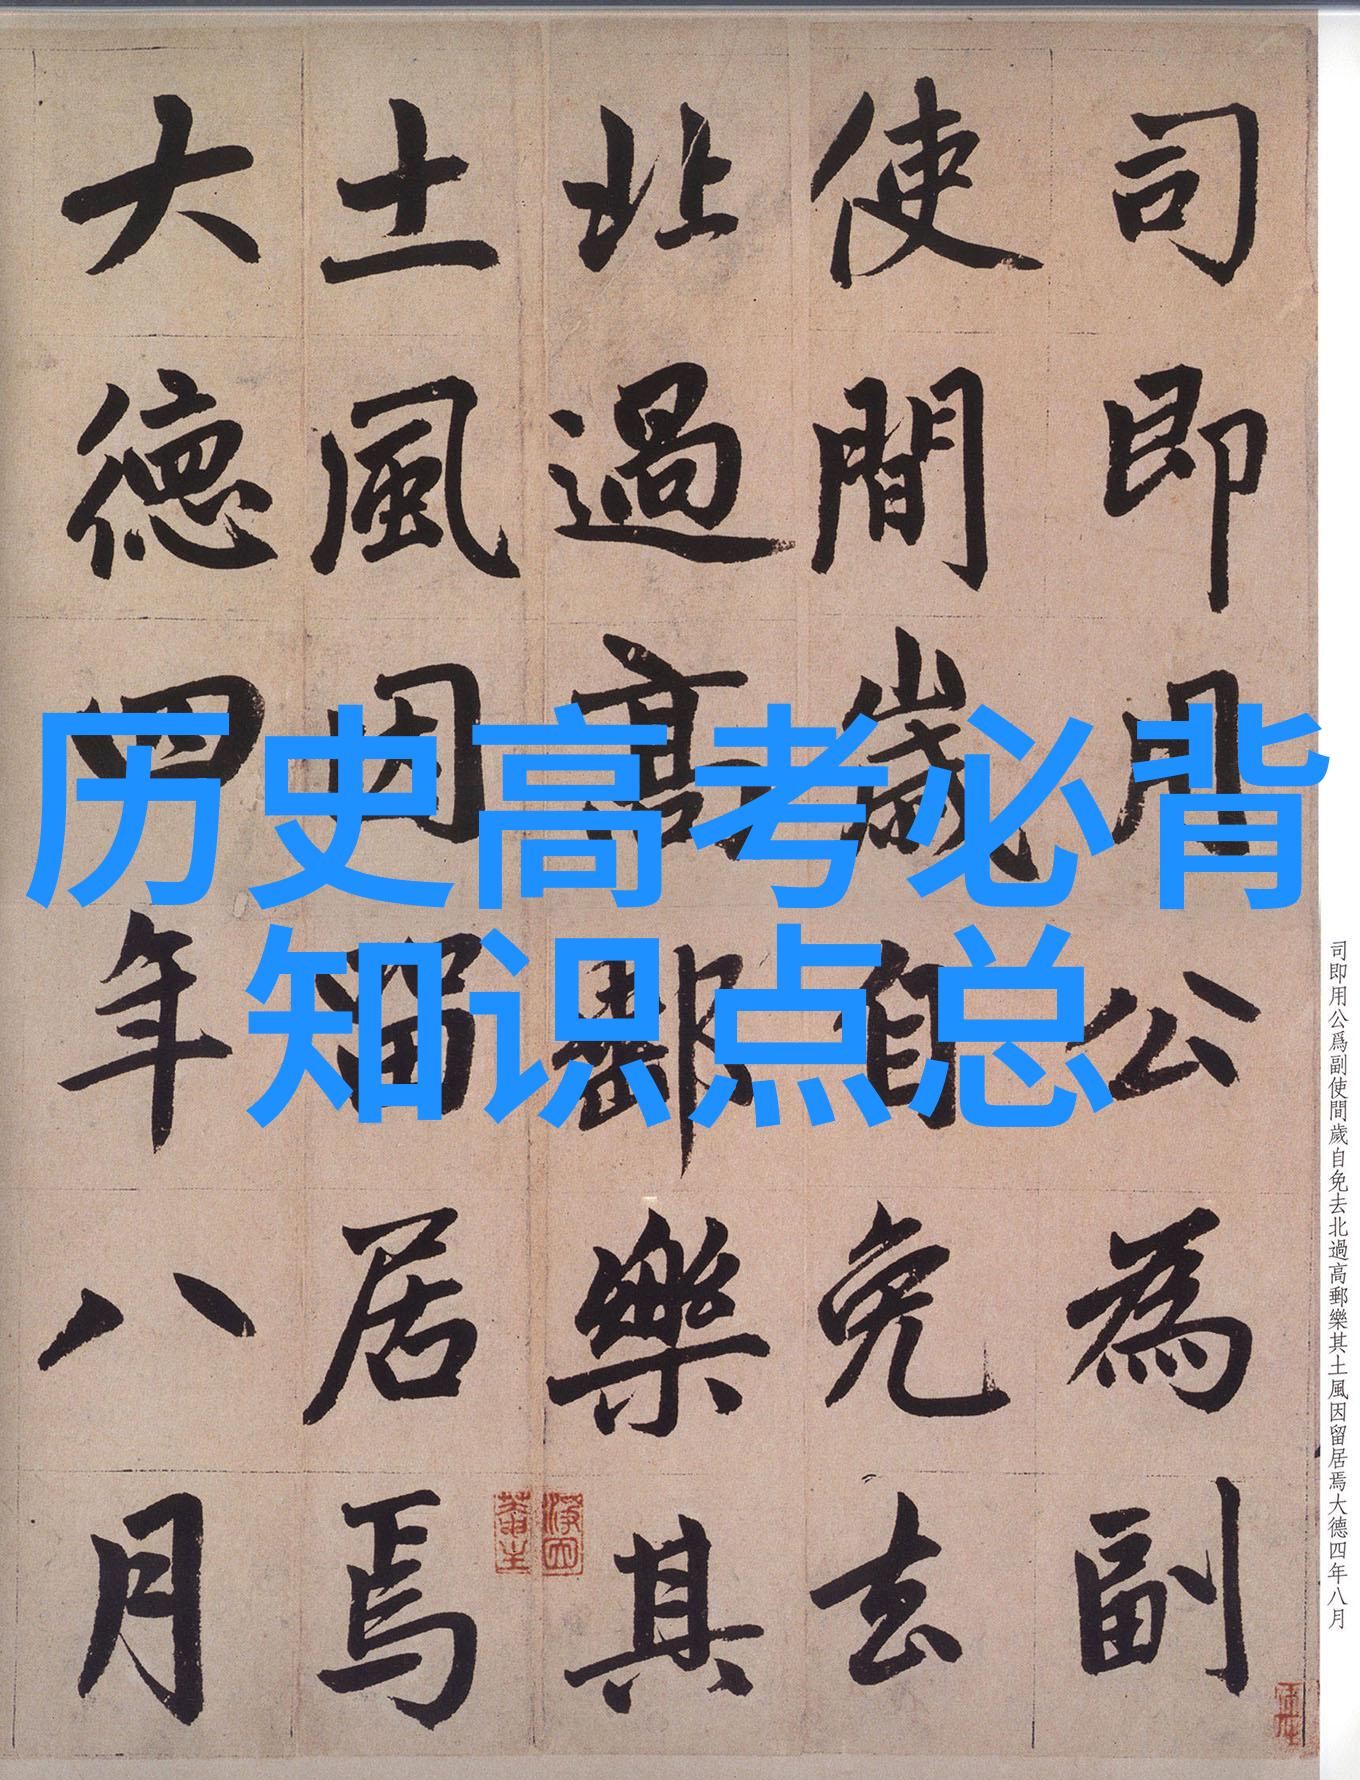 司即用公為副
使間歲自免去
北過高郵樂其
土風因留居焉
大德四年八月
历史高考必背
知识点总
司即用公爲副使間歲自免去北過高郵樂其土風因留居焉大德四年八月